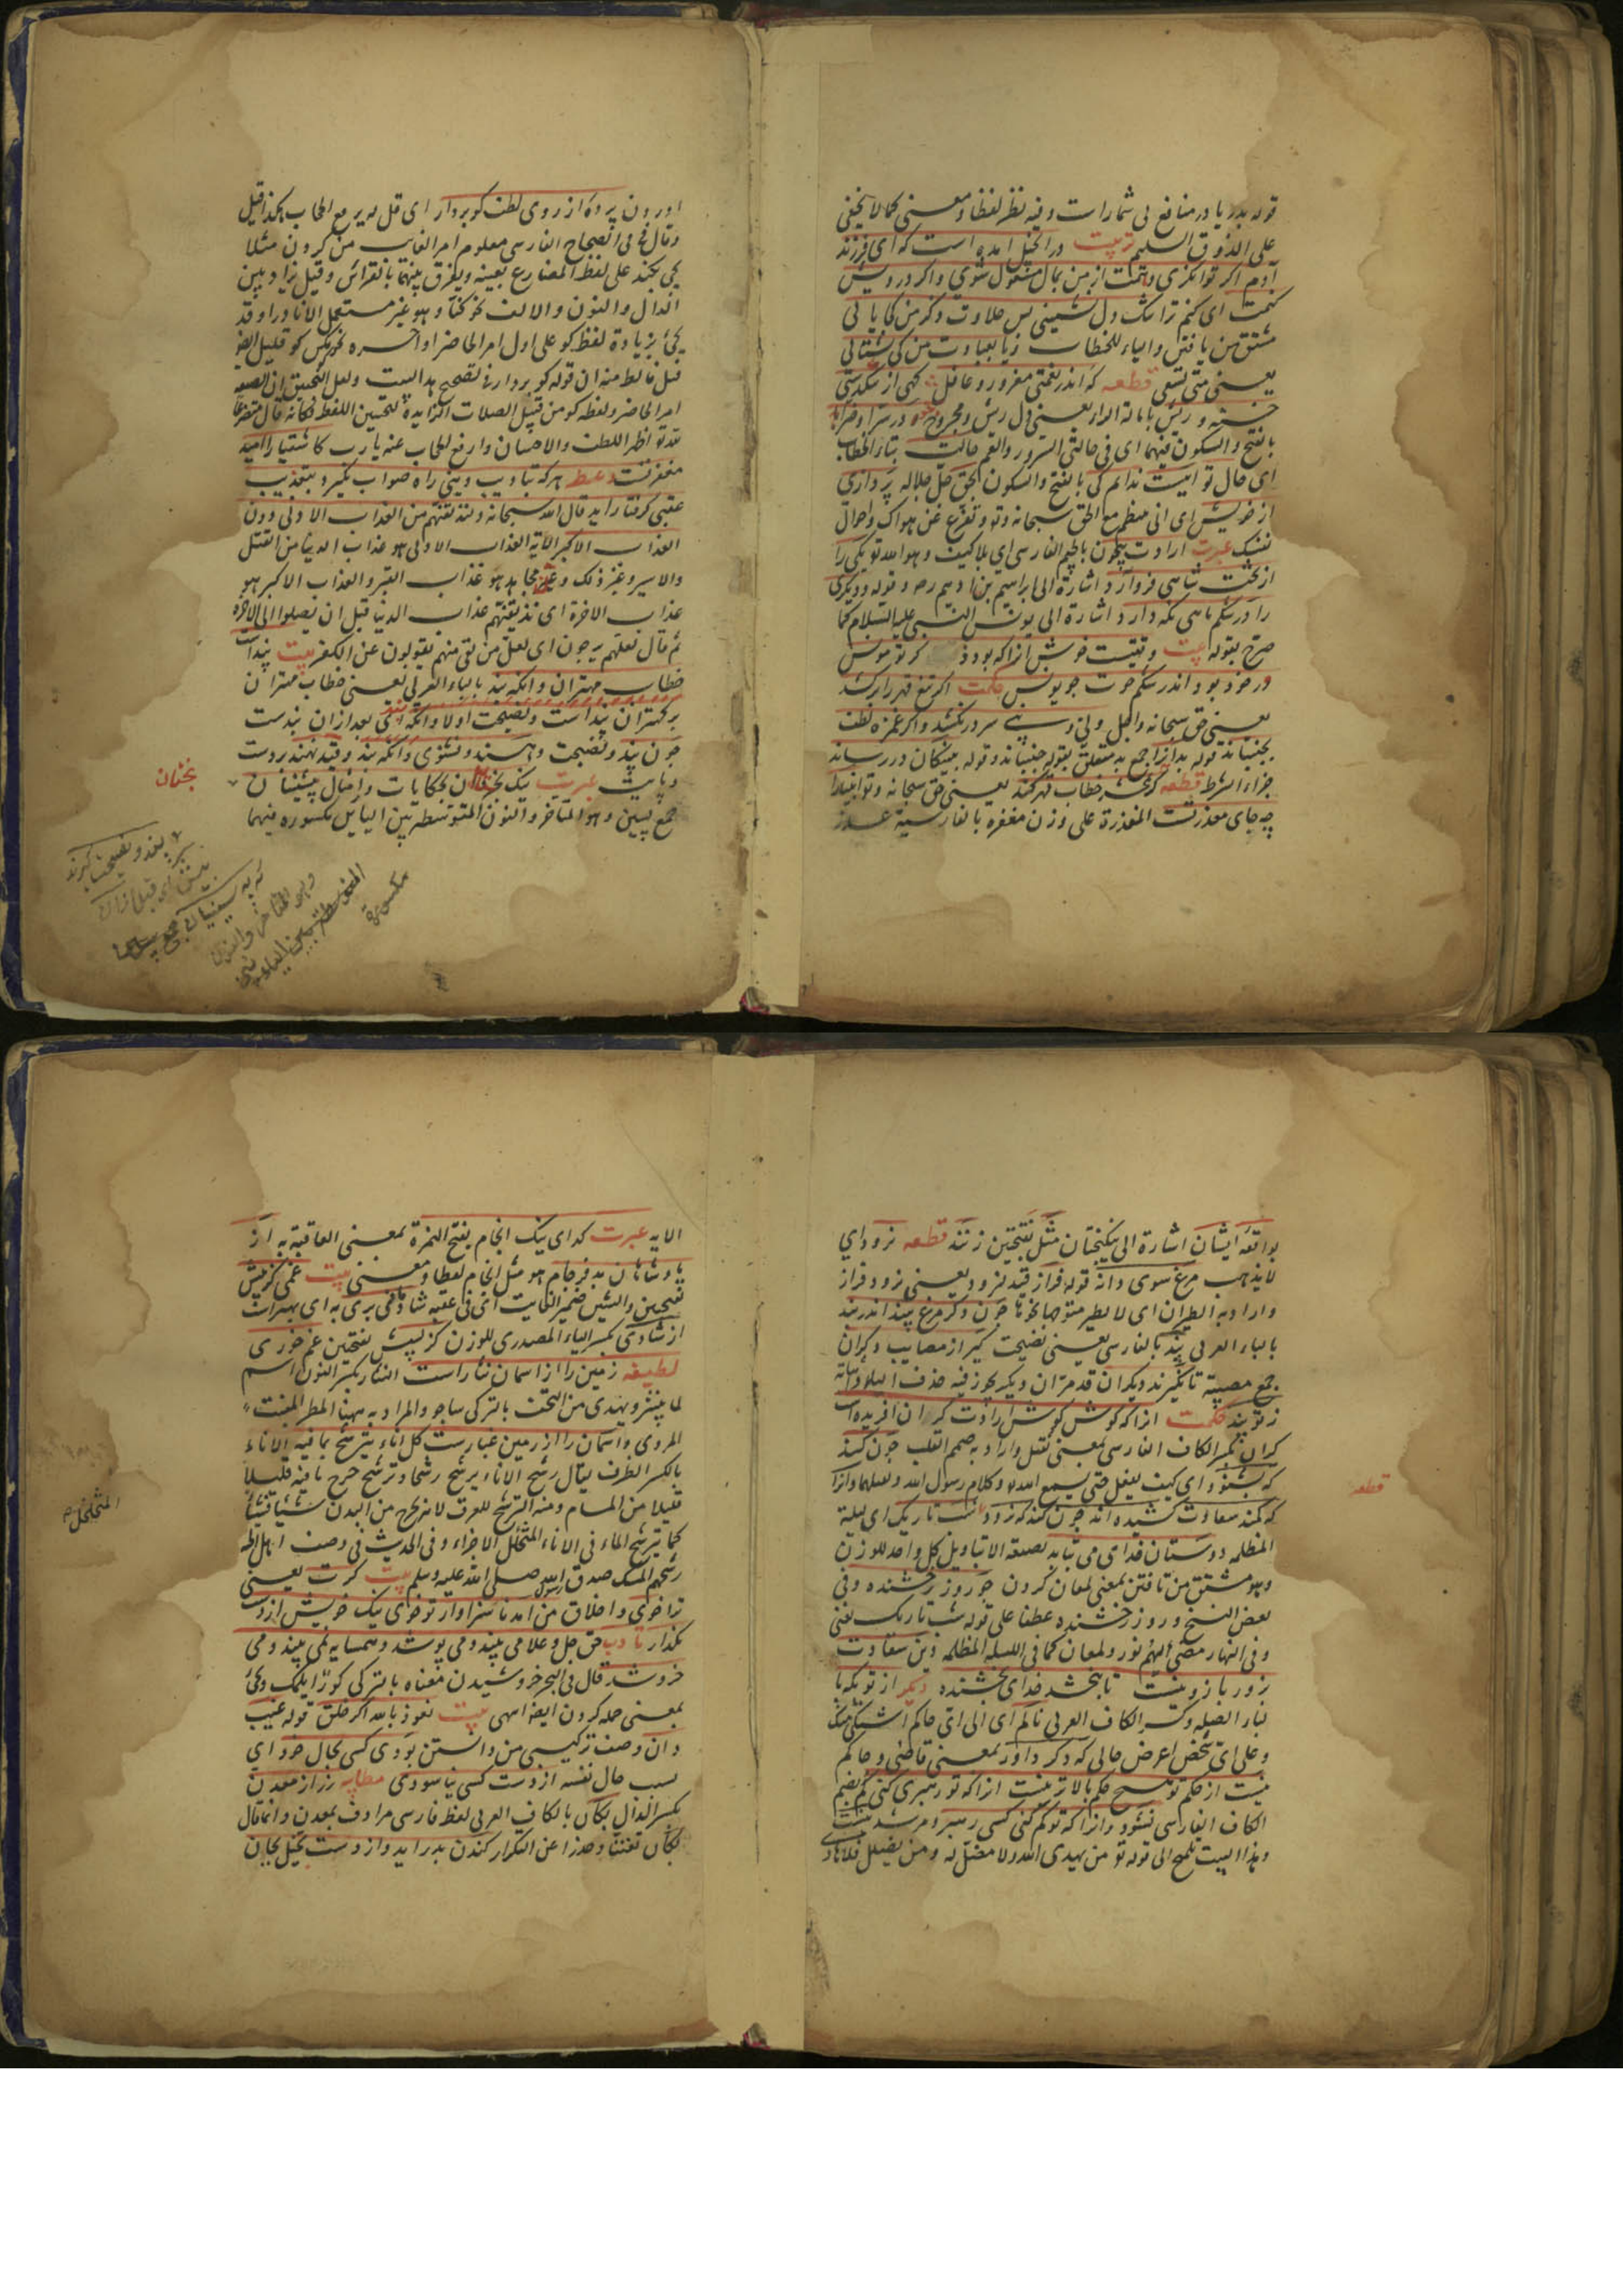 قوله بدریا در منافع بی شمارست وفیه نظر لفظا ومعنی کما لا یخفی
علی الذوق السلیم تربیت در انجیل آمده است که ای فرزند
آدم اکر توانکری دهمت از من بمال مشغول شوی واکر درویش
کنمت ای کنم ترا تنک دل نشینی پس حلاوت ذکر من کجا یابی
مشتق من یافتن والیاء للخطاب زیا بعبادت من کی شتابی
یعنی متی تسعی قطعه که اندر نعمتی مغرور وغافل کهی از تنکدستی
خسته وریش باماله الراء یعنی دل ریش ومجروح در سرا وضرا
بالفتح والسکون فیهما ای فی حالتی السرور والغم حالت بتاء الخطاب
ای حال تو اینست ندانم کی بالفتح والسکون بحق جل جلاله پردازی
از خویش ای انی منظم مع الحق سبحانه وتع وتفرغ عن هواک واحوال
نفسک عبرت ارادت بیچون بالجیم الفارسی ای بلا کیف وهو الله تع یکی را
از تخت شاهی فرو آرد اشارة الی ابراهیم بن ادهم رحه وقوله ودیکری
را در شکم ماهی نکه دارد اشارة الی یونس النبی علیه السلام کما
صرح بقوله بیت وقتیست خوش آنرا که بود ذکر تو مونس
ور خود بود اندر شکم حوت چو یونس حکمت اکر تیغ قهر برکشد
یعنی حق سبحانه وتع ولی ونبی سر در کشد واکر غمزه لطف
بجنباند قوله بدانرا جمع بد متعلق بقوله جنباند وقوله بنیکان در رساند
جزاء الشرط قطعه کر بمحشر خطاب قهر کند یعنی حق سبحانه وتع انبیا را
چه جای معذرتست المعذرة علی وزن مغفره بالفارسیة عذر
اوردن پرده از روی لطف کو بردار ای قل له یرفع الحجاب هکذا قیل
وقال فی الصحاح الفارسی معلوم امر الغائب من کردن مثلا
یجی بکند علی لفظ المضارع بعینه ویفرق بینهما بالقرائن وقیل یزاد بین
الدال والنون والالف نحو کنآد وهو غیر مستعمل الا نادرا وقد
یجئ بزیادة لفظ کو علی اول امر الحاضر او آخره
قیل غالط منه ان قوله کو بردار فی تصحیح هذا البیت ولعل التحقیق ان الصیغه
امر الحاضر ولفظه کو من قبیل الصلات الزایدة لتحسین اللفظ فکانه قال متضرعا
لله تع اظهر اللطف والاحسان وارفع الحجاب عنه یا رب کاشقیا را امید
مغفرتست وعظ هرکه بتادیب دنیی راه صواب نکیرد بتعذیب
عقبی کرفتار اید قال الله سبحانه ولنذیقنهم من العذاب الادنی دون
العذاب الاکبر الآیة العذاب الادنی هو عذاب الدنیا من القتل
والاسیر وغیر ذلک وعن مجاهد هو عذاب القبر والعذاب الاکبر هو
عذاب الاخرة ای نذیقنهم عذاب الدنیا قبل ان یصلوا الی الاخرة
ثم قال لعلهم یرجعون ای لعل من بقی منهم یتوبون عن الکفر بیت پنداست
خطاب مهتران وانکه بند بالباء العربی یعنی خطاب مهتران
بر کهتران پنداست ونصیحت اولا وانکهی بعد ازان بندست
چون پند ونصیحت دهند ونشنوی وانکه بند وقید نهند بردست
وپایت عبرت نیک بختان بحکایات وامثال پیشینیان
جمع پسین وهو المتأخر والنون المتوسطه بین الیایین مکسوره فیهما
بختان
پند ونصیحت کیرند
مکسوره
بواقعه ایشان اشارة الی نیکبختان مثل بفتحتین زنند قطعه نرود ای
لا یذهب مرغ سوی دانه قوله فراز قید لنرود یعنی نرود فراز
واراد به الطیران ای لا یطیر متوجها نحوها چون دکر مرغ بیند اندر بند
بالباء العربی پند بالفارسی یعنی نصیحت کیر از مصایب دکران
جمع مصیبة تا نکیرند دیکران قد مر ان دیکر یجوز فیه حذف الیاء واثباته
ز تو پند حکمت انرا که کوش ارادت کران آفریده اند
کران بکسر الکاف الفارسی بمعنی ثقیل واراد به صمم القلب چون کند
که بشنود ای کیف یفعل حتی یسمع امر الله وکلام رسول الله ولعلهما وانرا
قطعه
که بکمند سعادت کشیده اند چون کند که نرود شب تاریک ای لیلة
المظلمه دوستان خدای می بتابد بصیغه الاثبات ویل کل واحد للوزن
وهو مشتق من تافتن بمعنی لمعان کردن چو روز رخشنده وفی
بعض النسخ وروز رخشنده عطفا علی قوله شب تاریک یعنی
وفی النهار مضئ الیهم نور ولمعان کما فی اللیله المظلمه وین سعادت
بزور بازو نیست تا نبخشد خدای بخشنده دیکر از تو بکه
بباء الصله وکسر الکاف العربی نالم ای الی ای حاکم اشتکی منک
وعلی ای شخص اعرض حالی که دکر داور بمعنی قاضی وحاکم
نیست از حکم تو هیچ حکم بالاتر نیست انرا که تو رهبری کنی کم بضم
الکاف الفارسی نشود وانرا که تو کم کنی کسی رهبر ومرشد نیست
وهذا البیت تلمیح الی قوله تع من یهدی الله فلا مضل له ومن یضلل فلا هاد
الایه عبرت کدای نیک انجام بفتح الهمزة بمعنی العاقبة به از
پادشاهان بد فرجام هو مثل انجام لفظا ومعنی بیت غمی کزپیش
بفتحتین والشین ضمیر الغایب ای فی عقبه شادمانی بری به ای بهتر است
از شادی بکسر الیاء المصدری للوزن کز پیش بفتحتین غم خوری
لطیفه زمین را از اسمان نثار است النثار بکسر النون اسم
لما ینثر ویهدی من التحف بالترکی ساچو والمراد به ههنا المطر المنبت
المروی واسمان را از زمین غبارست کل اناء یترشح بما فیه الاناء
بالکسر الظرف یقال رشح الاناء یرشح رشحا وترشح خرج مافیه قلیلا
قلیلا من المسام ومنه الترشح للعرق لانه یخرج من البدن شیئا فشیئا
کما یترشح الماء فی الاناء المتخلخل الاجزاء وفی الحدیث فی وصف اهل الجنه
رشحهم المسک صدق رسول الله صلی الله علیه وسلم بیت کرت یعنی
ترا خوی واخلاق من آمد ناسزاوار تو خوی نیک خویش از دست
مکذار تادیب حق جل وعلا می بیند ومی پوشد وهمسایه نمی بیند ومی
خروشد قال فی البحر خروشیدن معناه بالترکی کورلمک ویجئ
بمعنی حمله کردن ایضا انتهی بیت نعوذ بالله اکر خلق قوله غیب
دان وصف ترکیبی من دانستن بودی کسی بحال خود ای
بسبب حال نفسه از دست کسی نیاسودی مطایبه زر از معدن
بکسر الدال بکان بالکاف العربی لفظ فارسی مرادف بمعدن وانما قال
بکان تفننا وحذرا عن التکرار کندن بدر اید واز دست بخیل بجان
المتخلخل